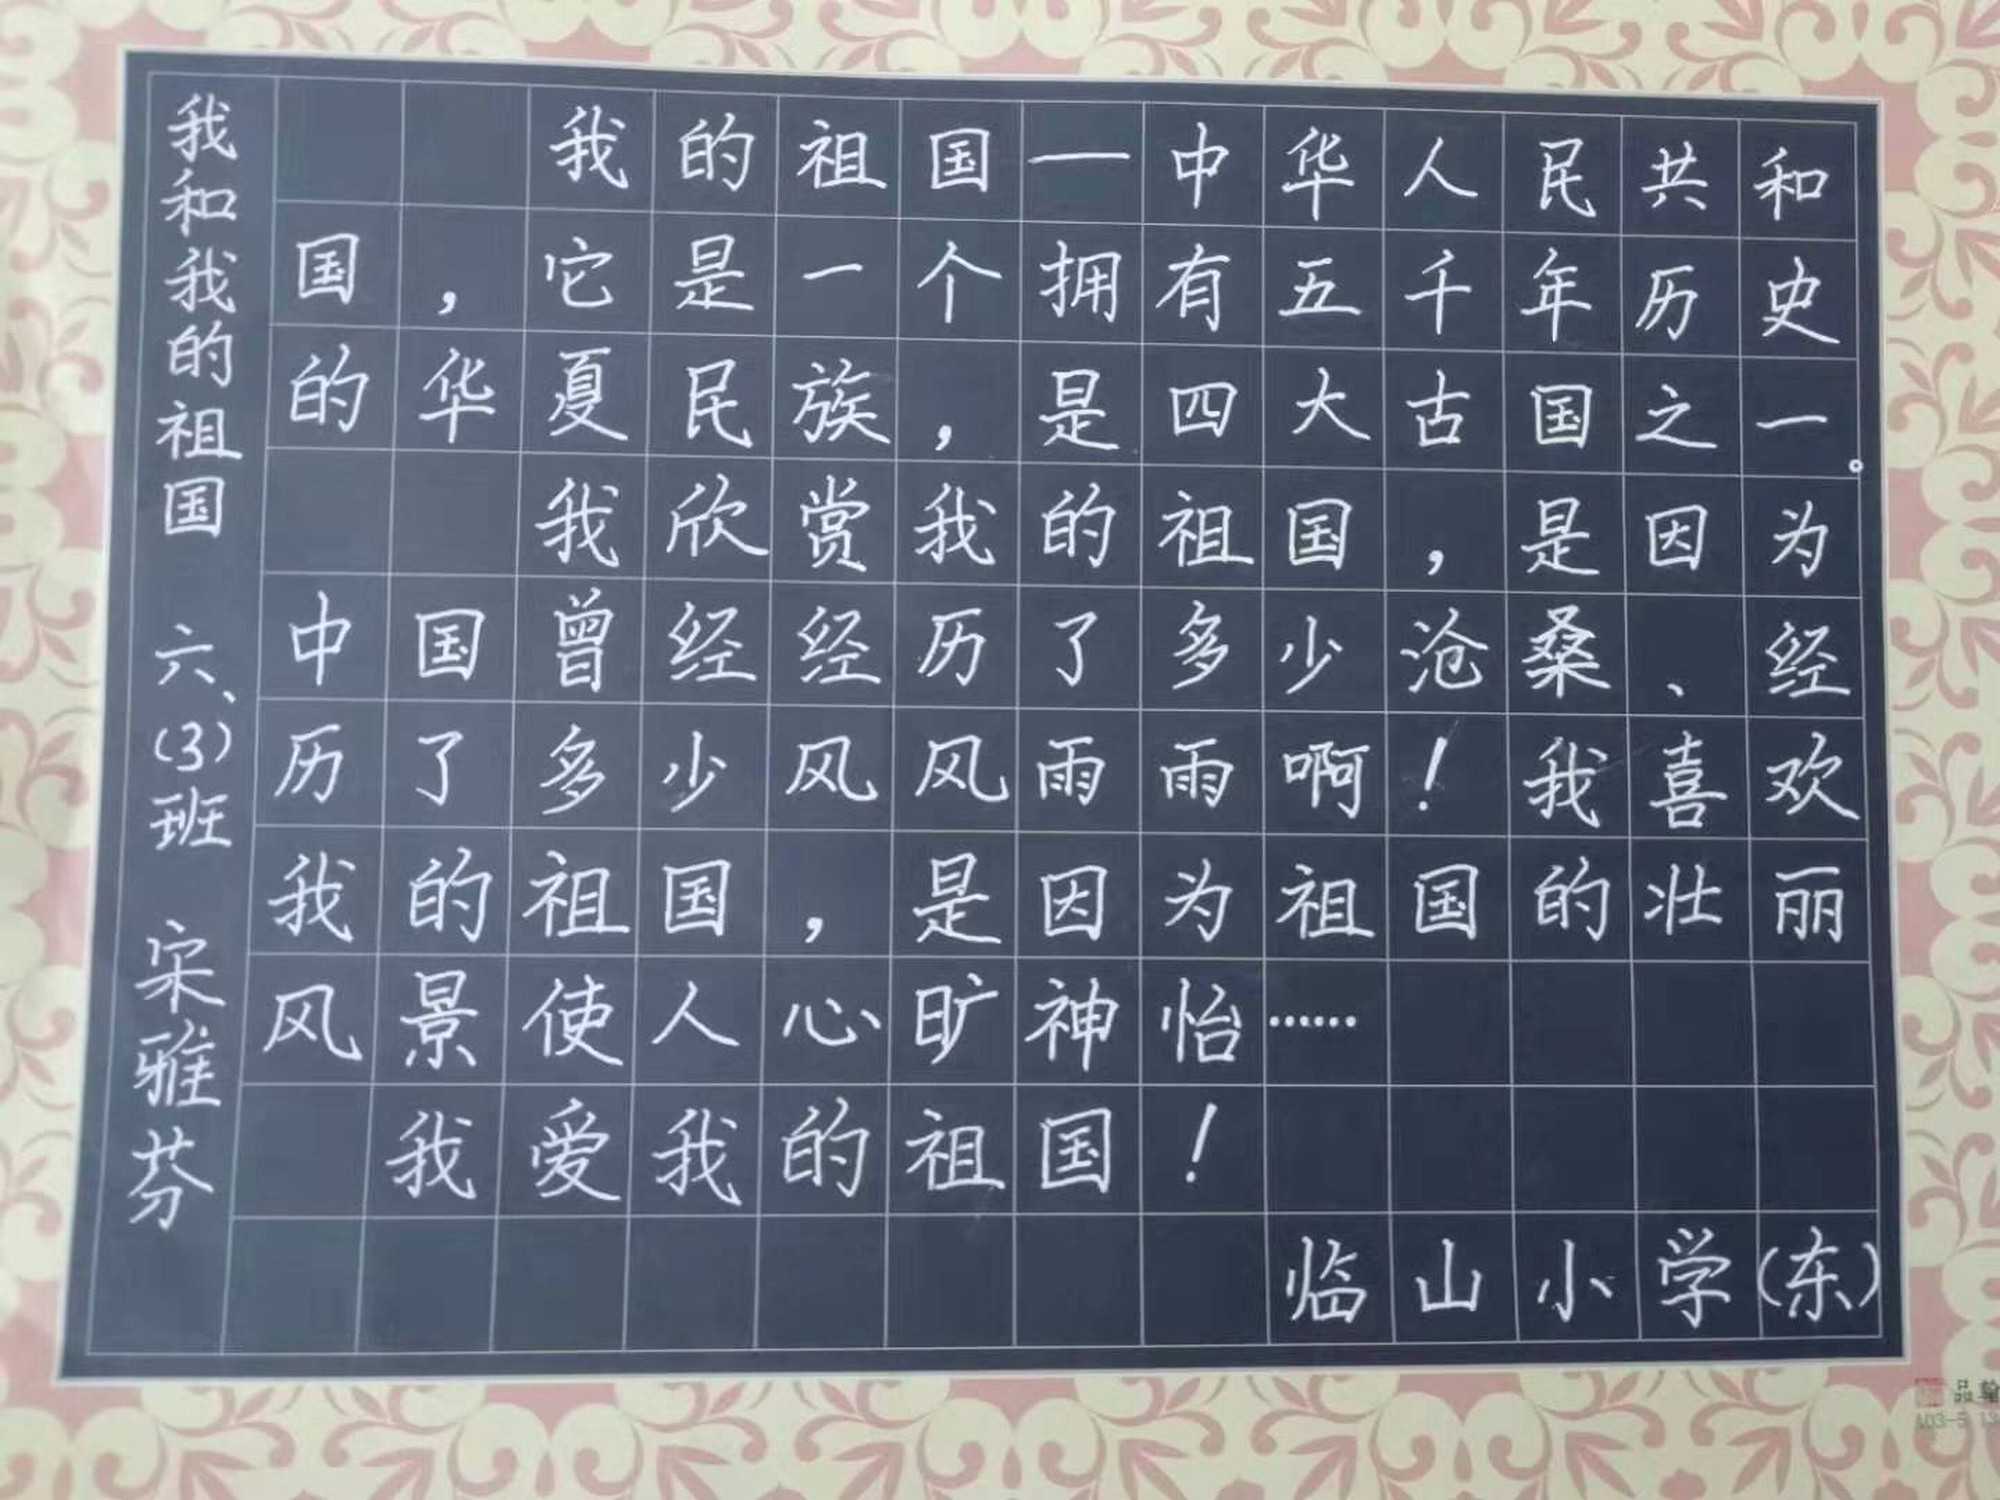 我和我的祖国 六、(3)班 宋雅芬
我的祖国—中华人民共和
国，它是一个拥有五千年历史
的华夏民族，是四大古国之一。
我欣赏我的祖国，是因为
中国曾经经历了多少沧桑、经
历了多少风风雨雨啊！我喜欢
我的祖国，是因为祖国的壮丽
风景使人心旷神怡……
我爱我的祖国！
临山小学(东)
品翰
A03-5